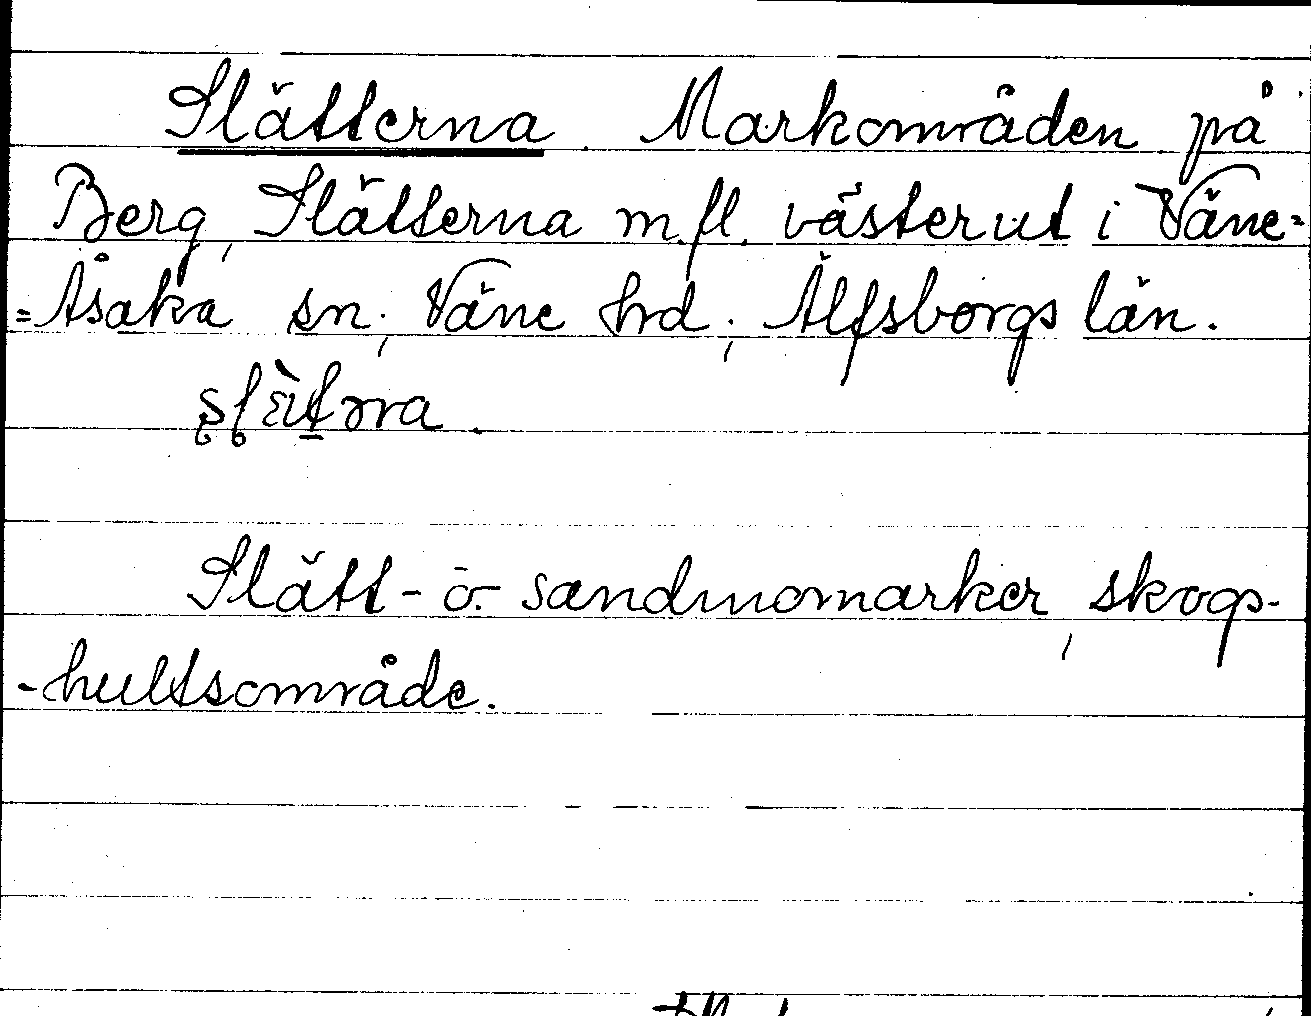 Slätterna Markområden på
Berg, Slätterna m.fl. västerut i Väne=
=Åsaka sn, Väne hrd, Älfsborgs län.
Slätt- o. sandmomarker, skogs-
-hultsområde.